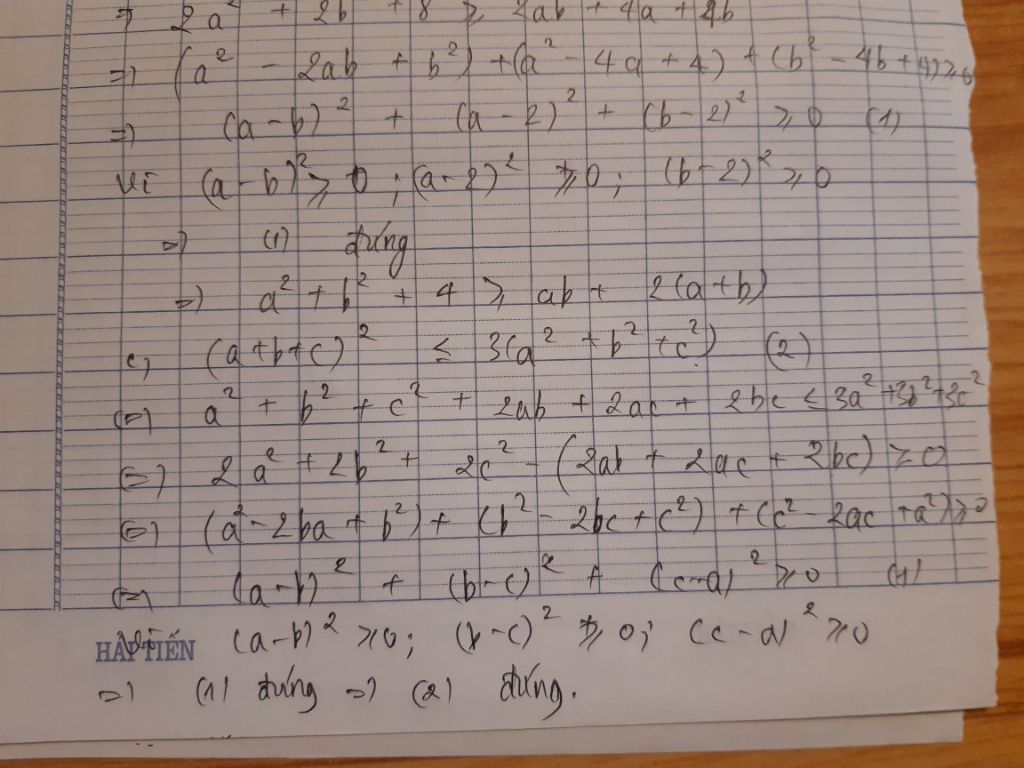 => 2a² + 2b² + 8 ≥ 2ab + 4a + 4b
=> (a² - 2ab + b²) + (a² - 4a + 4) + (b² - 4b + 4) ≥ 0
=> (a - b)² + (a - 2)² + (b - 2)² ≥ 0 (1)
Vì (a - b)² ≥ 0 ; (a - 2)² ≥ 0 ; (b - 2)² ≥ 0
=> (1) đúng
=> a² + b² + 4 ≥ ab + 2(a + b)
c, (a + b + c)² ≤ 3(a² + b² + c²) (2)
(=) a² + b² + c² + 2ab + 2ac + 2bc ≤ 3a² + 3b² + 3c²
(=) 2a² + 2b² + 2c² - (2ab + 2ac + 2bc) ≥ 0
(=) (a² - 2ba + b²) + (b² - 2bc + c²) + (c² - 2ac + a²) ≥ 0
(=) (a - b)² + (b - c)² + (c - a)² ≥ 0 (1)
HẢI TIẾN (a - b)² ≥ 0 ; (b - c)² ≥ 0 ; (c - a)² ≥ 0
=> (1) đúng => (2) đúng.